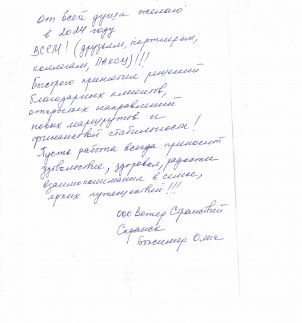 от всей души желаю
в 2024 году
ВСЕМ! (друзьям, партнерам,
коллегам, ПАКСу)!!!
Быстрого принятия решений
благодарных клиентов,
открытых направлений
новых маршрутов и
финансовой стабильности!
Пусть работа всегда приносит
удовольствие, здоровья, радости
взаимопонимания в семье,
ярких путешествий!!!
ООО Ветер Странствий
Саранск
Ольга